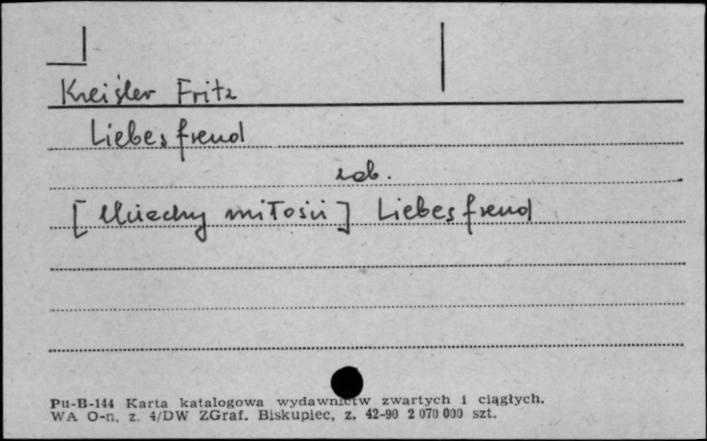 Kreisler Fritz
Liebesfreud
zob.
[Uciechy miłości] Liebesfreud
Pu-B-144 Karta katalogowa wydawnictw zwartych i ciągłych.
WA O-n. z. 4/DW ZGraf. Biskupiec, z. 42-90 2 070 000 szt.